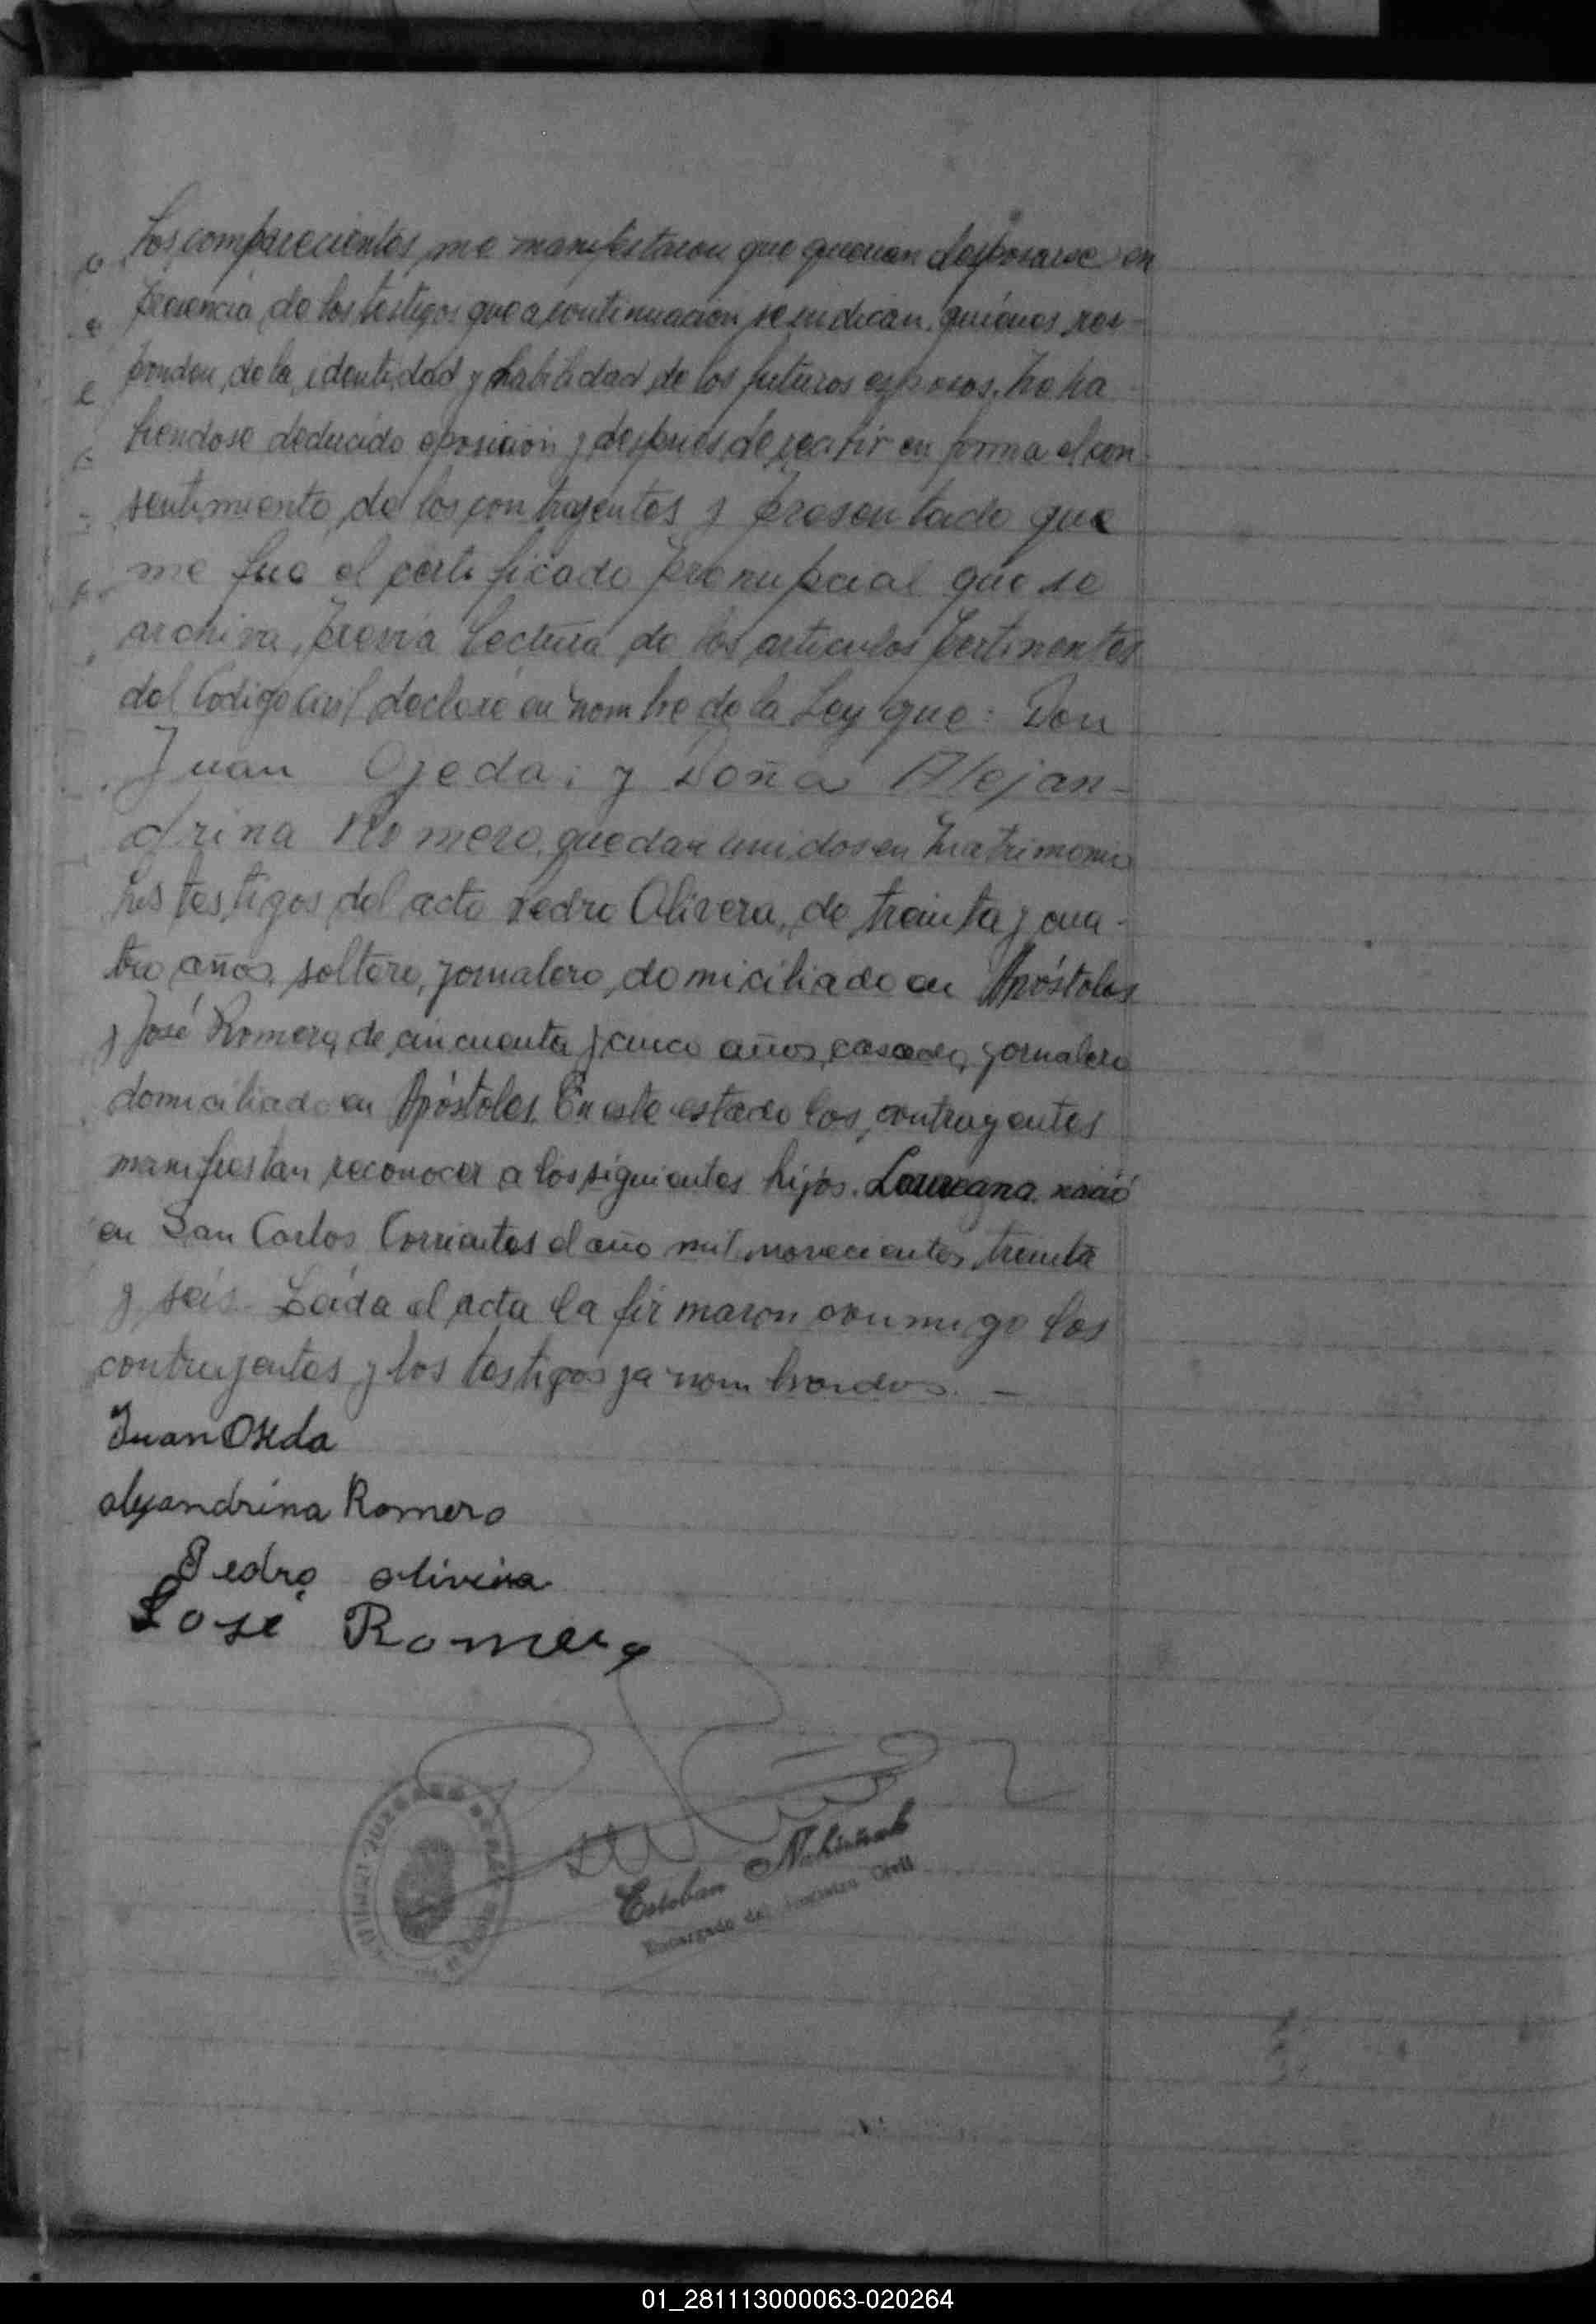 Los comparecientes me manifestaron que querian desposarse en
presencia de los testigos que a continuación se indican, quiénes res-
ponden de la identidad y habilidad de los futuros esposos. No ha
biendose deducido oposición y después de recibir en forma el con-
sentimiento de los contrayentes y presentado que
me fue el certificado prenupcial que se
archiva, previa lectura de los articulos pertinentes
del Codigo Civil declaré en nombre de la Ley que: Don
Juan Ojeda; y Doña Alejan-
drina Romero, quedan unidos en Matrimonio
testigos del acto Pedro Olivera, de treinta y cua-
tro años, soltero, jornalero, domiciliado en Apóstoles
y José Romero, de cincuenta y cinco años, casado, jornalero
domiciliado en Apóstoles. En este estado los contrayentes
manifiestan reconocer a los siguientes hijos. Laureana nació
en San Carlos Corrientes el año mil novecientos treinta
y seis. Leída el acta la firmaron conmigo los
contrayentes y los testigos ya nombrados. —
Juan Ojeda
alejandrina Romero
Pedro olivera
José Romero
Esteban
Encargado del Registro Civil
01_281113000063-020264